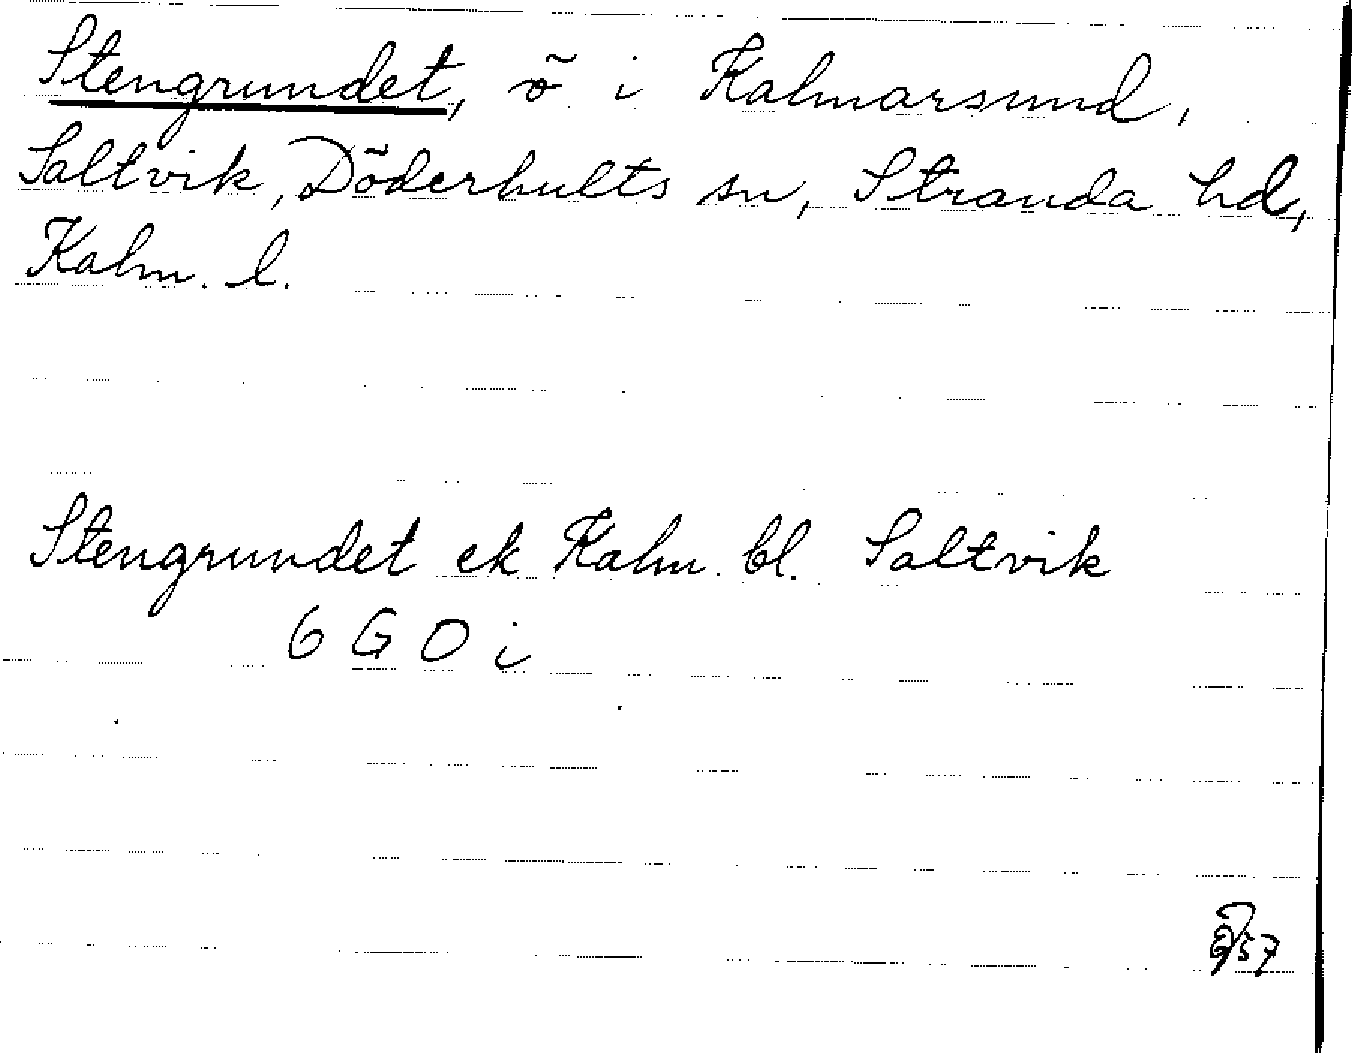 Stengrundet, ö i Kalmarsund,
Saltvik, Döderhults sn, Stranda hd,
Kalm. l.
Stengrundet ek Kalm. bl. Saltvik
6 G O i